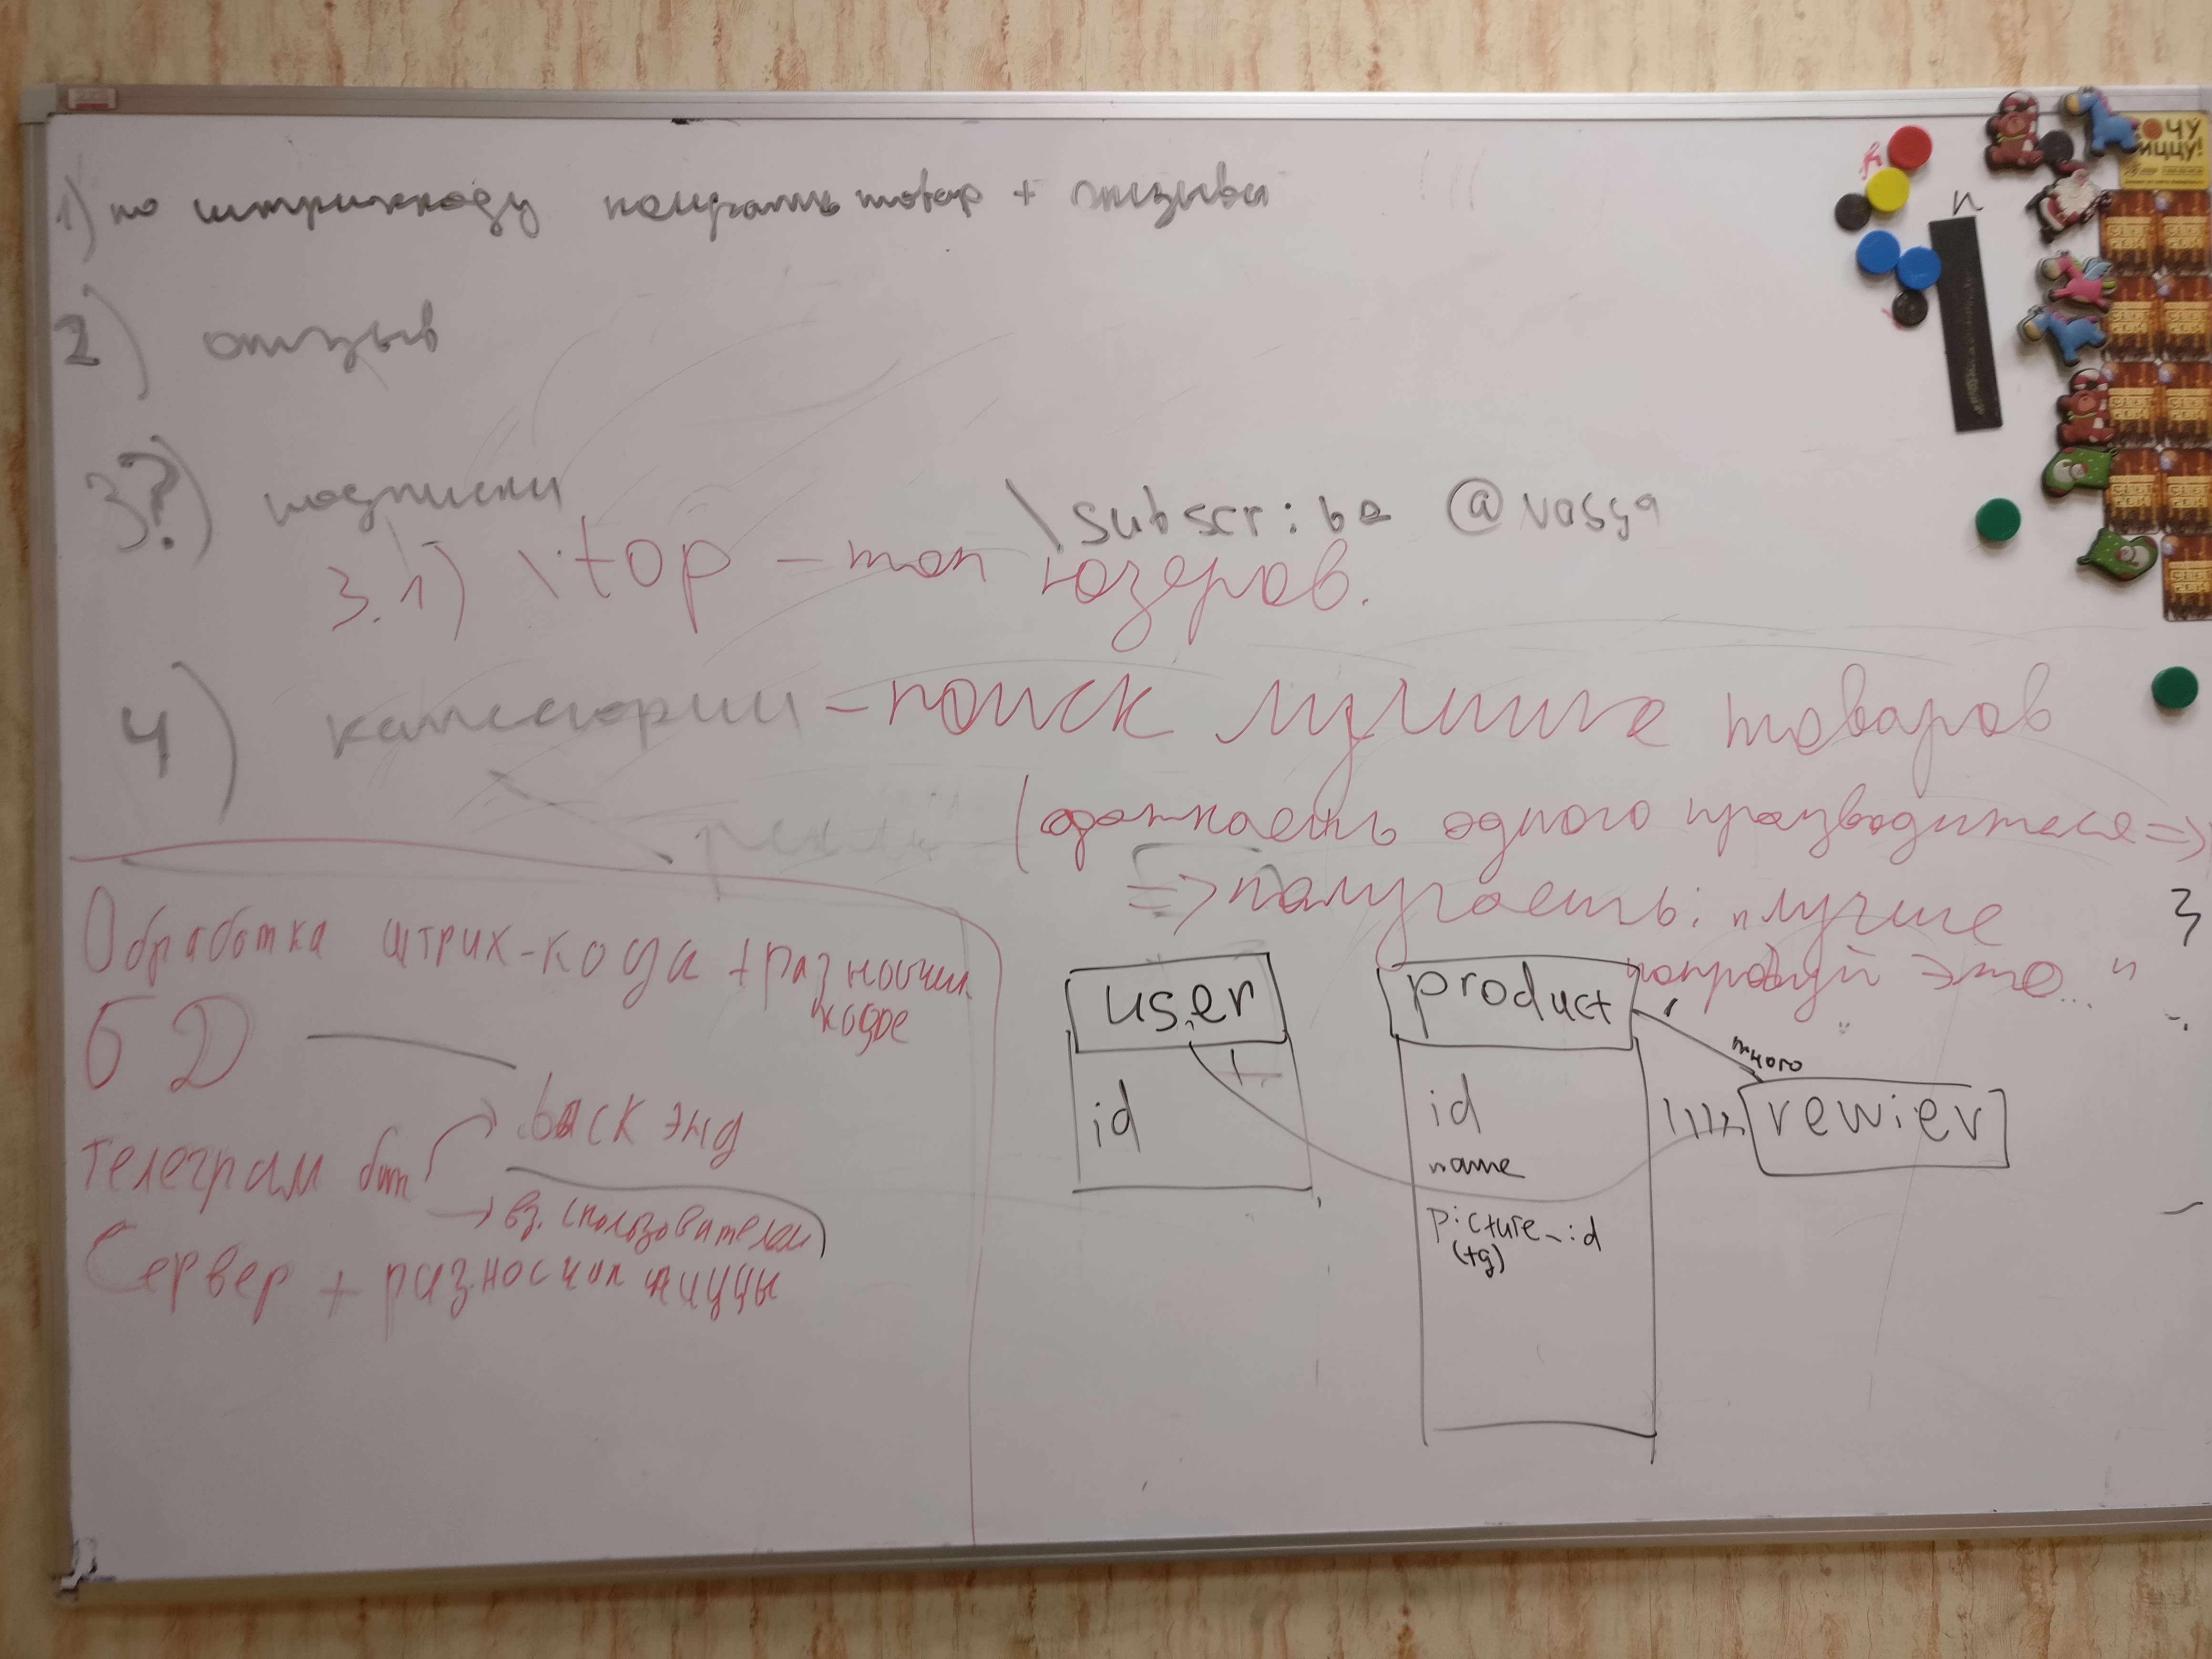 1) по штрихкоду получать товар + отзывы
2) отзыв
3?) подписки
\subscribe @vasya
3.1) \top – топ юзеров.
4) категории – поиск лучших товаров
одного производителя =>
=> получаешь: "лучше
попробуй это... "
Обработка штрих-кода + разносчик
кофе
БД
бэск энд
Телеграм бот
-> вз. с пользователем
Сервер + разносчик пиццы
user
id
product
id
name
picture_id
(tg)
много
rewiev
ХОЧУ
ПИЦЦУ!